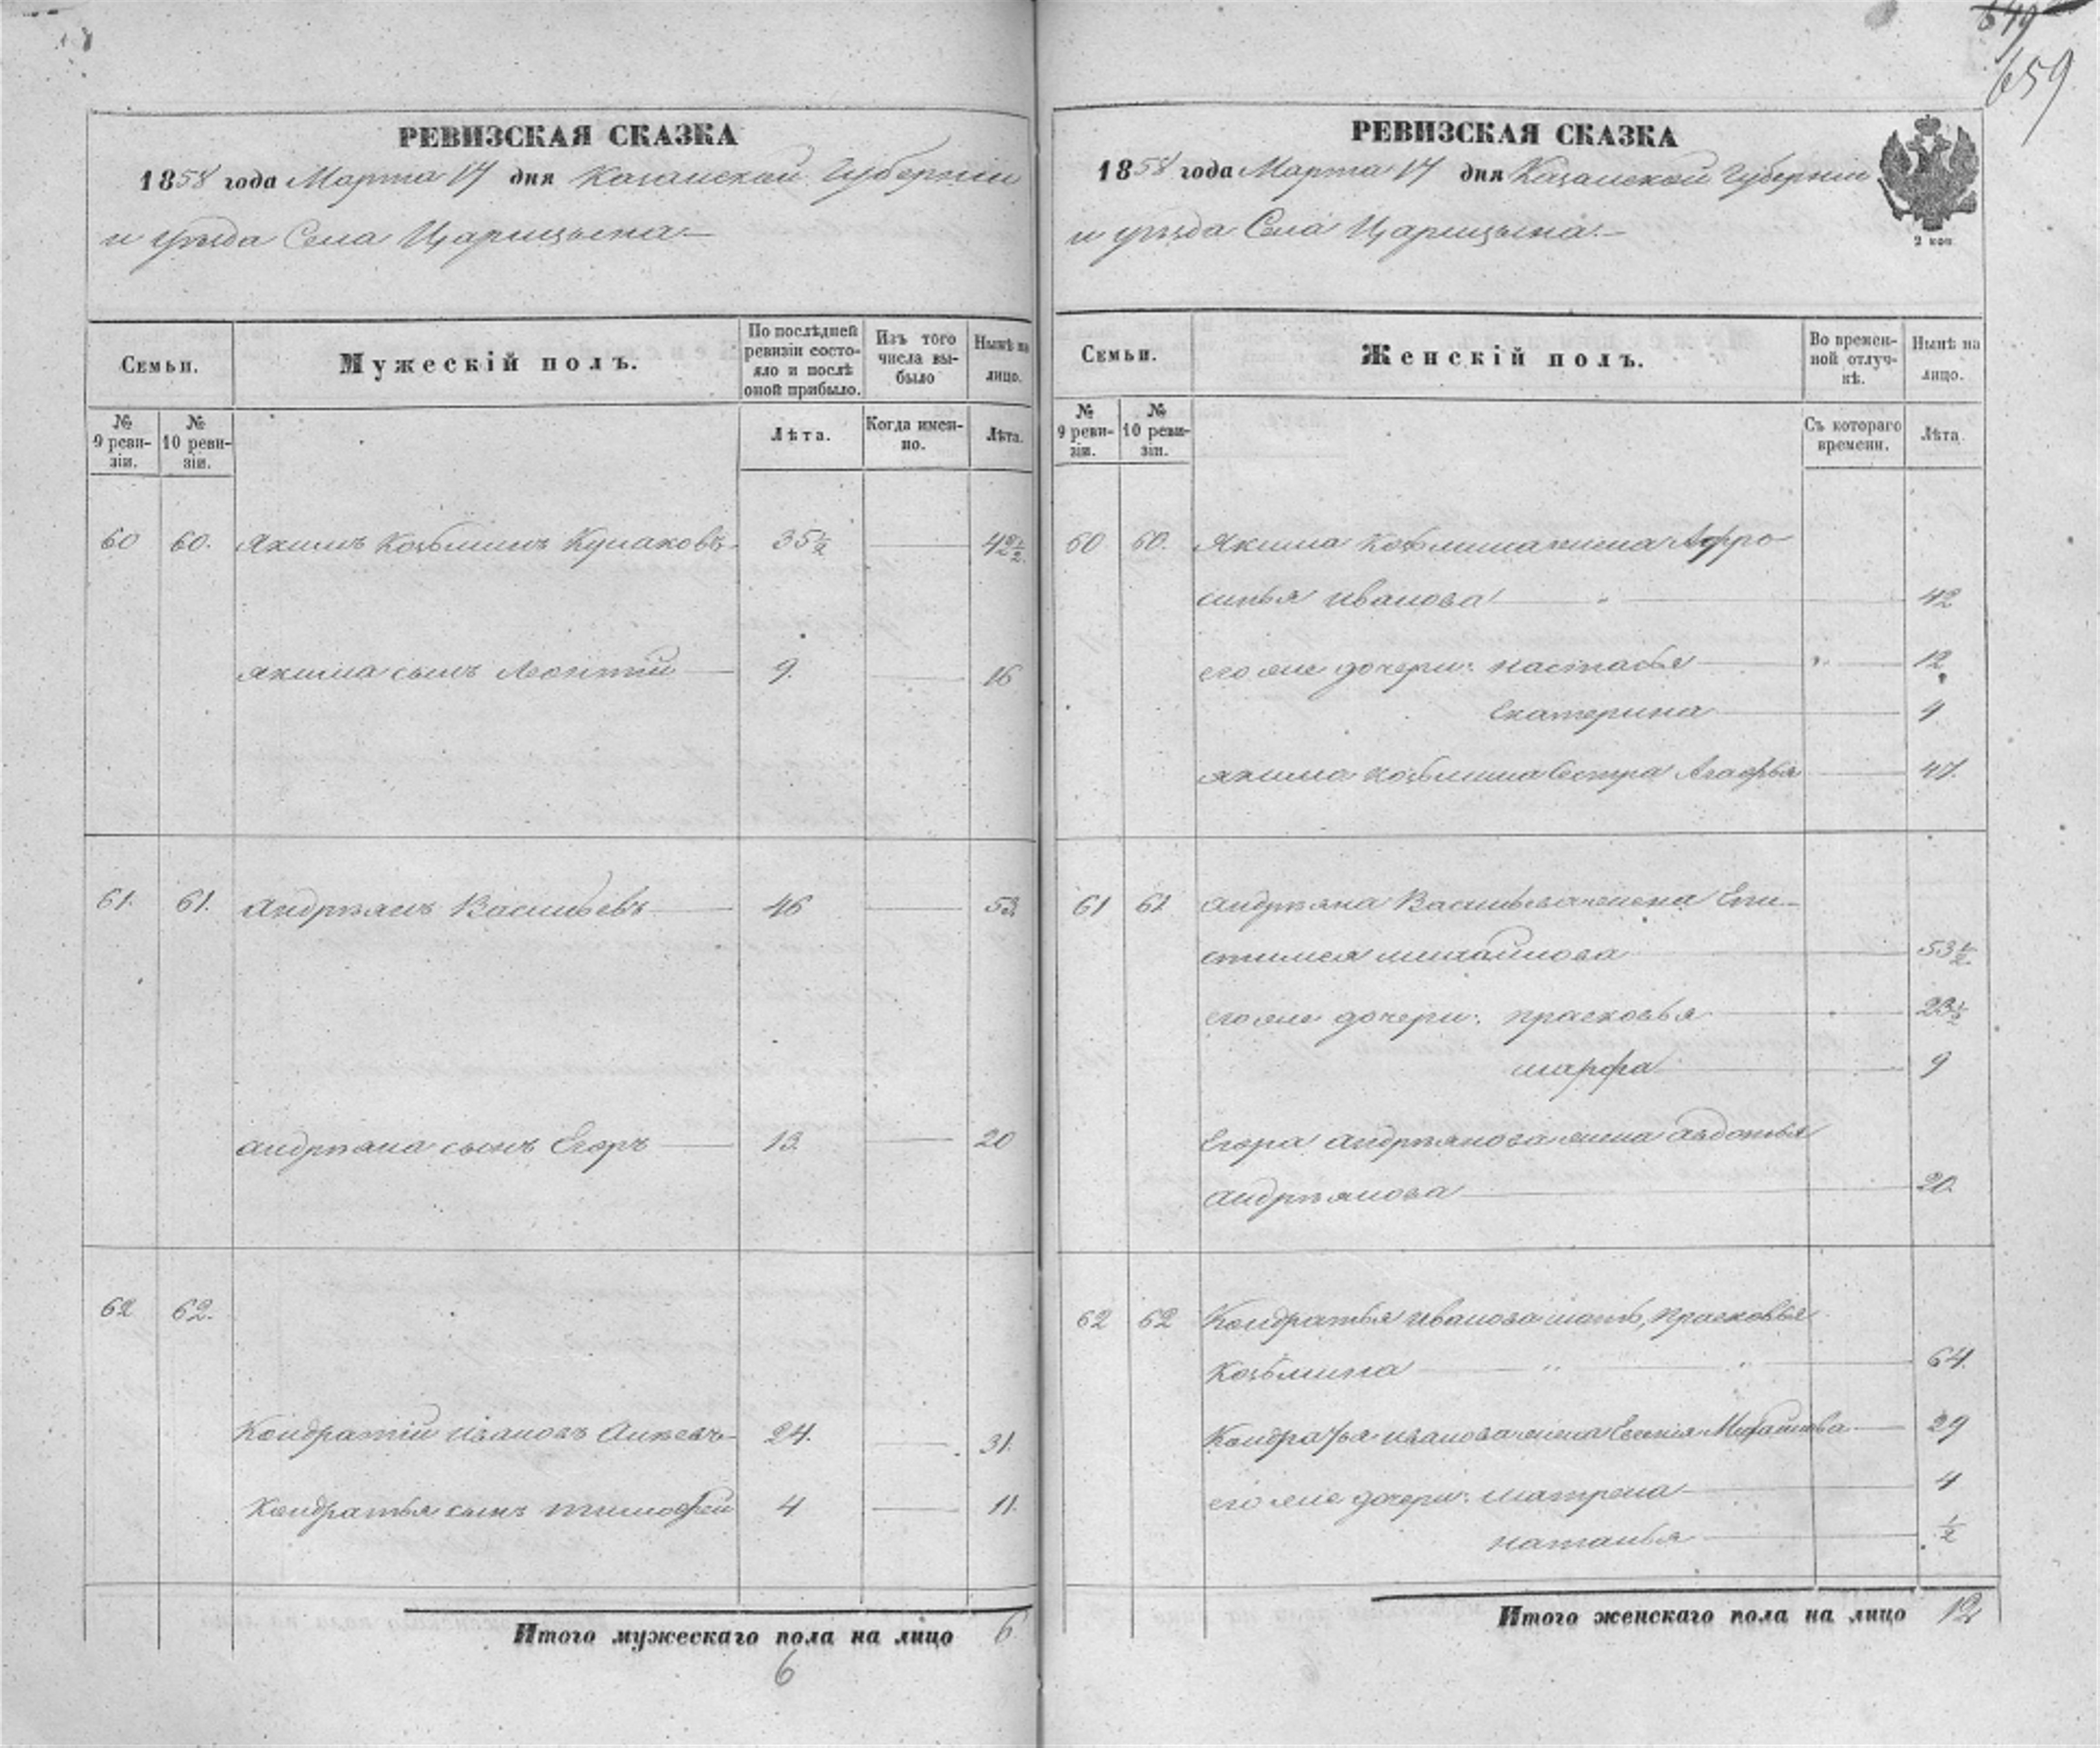 649
659
РЕВИЗСКАЯ СКАЗКА
1858 года Марта 17 дня Казанской Губерніи
и уѣзда Села Царицына
Семьи.
Мужескій полъ.
По послѣдней ревизіи состояло и послѣ оной прибыло.
Изъ того числа выбыло
Нынѣ на лицо.
№ 9 ревизіи.
№ 10 ревизіи.
Лѣта.
Когда именно.
Лѣта.
60 60. Якимъ Козьминъ 35½ 42½
Якима сынъ Леонтій 9. 16
61. 61. Андреянъ Васильевъ 46 53
Андреяна сынъ Егоръ 13. 20
62 62.
Кондратій Ивановъ 24. 31.
Кондратья сынъ Тимофей 4 11.
Итого мужескаго пола на лицо 6
6
РЕВИЗСКАЯ СКАЗКА
1858 года Марта 17 дня Казанской Губерніи
и уѣзда Села Царицына
2 коп
Семьи.
Женскій полъ.
Во временной отлучкѣ.
Нынѣ на лицо.
№ 9 ревизіи.
№ 10 ревизіи.
Съ котораго времени.
Лѣта
60 60. Якима Козьмина жена Афро
синья Иванова 42
его же дочери: Настасья 12
Екатерина 9
Якима Козьмина Сестра Агафья 47.
61 61 Андреяна Васильева жена Епи-
стимея Михайлова 53½
его же дочери: Прасковья 23½
Марфа 9
Егора Андреянова жена Авдотья
Андреянова 20.
62 62 Кондратья Иванова мать, Прасковья
Козьмина 64.
Кондратья Иванова жена Михайлова 29
его же дочери: Матрена 4
Наталья ½
Итого женскаго пола на лицо 12